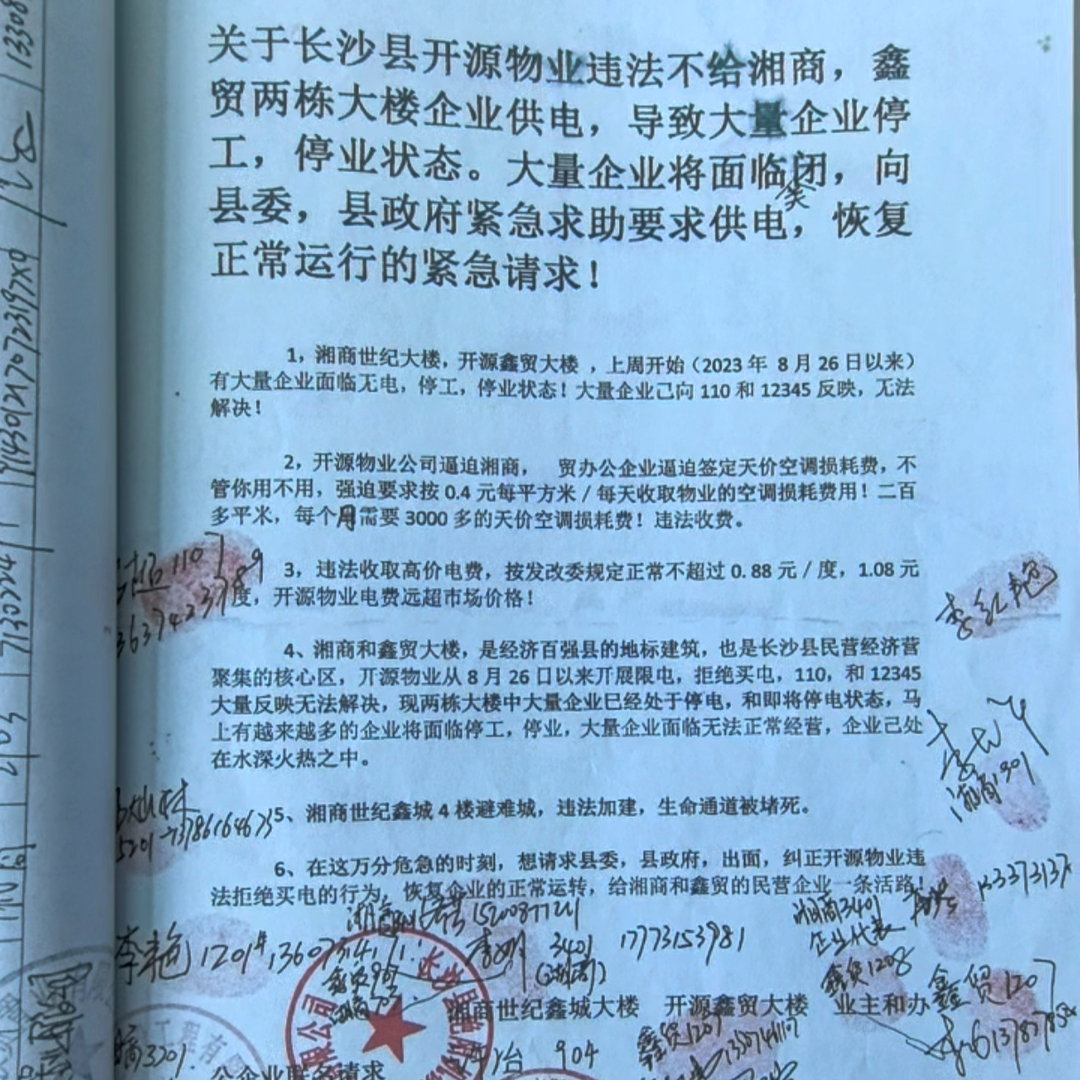 关于长沙县开源物业违法不给湘商，鑫
贸两栋大楼企业供电，导致大量企业停
工，停业状态。大量企业将面临闭，向
县委，县政府紧急求助要求供电，恢复
正常运行的紧急请求！
1，湘商世纪大楼，开源鑫贸大楼 ，上周开始（2023 年 8 月 26 日以来）
有大量企业面临无电，停工，停业状态！大量企业己向 110 和 12345 反映，无法
解决！
2，开源物业公司逼迫湘商， 贸办公企业逼迫签定天价空调损耗费，不
管你用不用，强迫要求按 0.4 元每平方米 / 每天收取物业的空调损耗费用！二百
多平米，每个月需要 3000 多的天价空调损耗费！违法收费。
3，违法收取高价电费，按发改委规定正常不超过 0.88 元 / 度，1.08 元
度，开源物业电费远超市场价格！
4、湘商和鑫贸大楼，是经济百强县的地标建筑，也是长沙县民营经济营
聚集的核心区，开源物业从 8 月 26 日以来开展限电，拒绝买电，110，和 12345
大量反映无法解决，现两栋大楼中大量企业已经处于停电，和即将停电状态，马
上有越来越多的企业将面临停工，停业，大量企业面临无法正常经营，企业己处
在水深火热之中。
5、湘商世纪鑫城 4 楼避难城，违法加建，生命通道被堵死。
6、在这万分危急的时刻，想请求县委，县政府，出面，纠正开源物业违
法拒绝买电的行为，恢复企业的正常运转，给湘商和鑫贸的民营企业一条活路！
李艳 1201#
3401 17773153981
湘商3401
企业代表
鑫贸1208
鑫贸1207
湘商世纪鑫城大楼 开源鑫贸大楼 业主和办
904
公企业联名请求